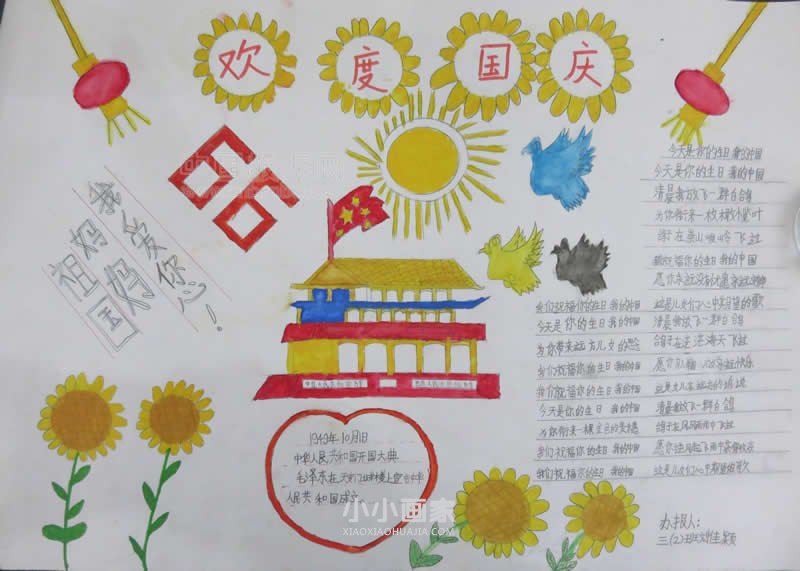 欢度国庆
66
祖国妈妈
我爱你！
今天是你的生日 我的中国
今天是你的生日 我的中国
清晨我放飞一群白鸽
为你衔来一枚橄榄叶
鸽子在崇山峻岭飞过
我们祝福你的生日 我的中国
愿你永远没有忧患永远宁静
我们祝福你的生日 我的中国
这是儿女们心中期望的歌
今天是你的生日 我的中国
清晨我放飞一群白鸽
为你带来远方儿女的思念
鸽子在茫茫海天飞过
我们祝福你的生日 我的中国
我们祝福你的生日 我的中国
这是儿女在远方的
今天是你的生日 我的中国
清晨我放飞一群白鸽
为你衔来一棵金色的麦穗
鸽子在风风雨雨中飞过
我们祝福你的生日 我的中国
我们祝福你的生日 我的中国
1949年10月1日
中华人民共和国开国大典
毛泽东在天安门城楼上宣布中华
人民共和国成立
办报人：
三(2)班
小小画家
XIAOXIAOHUAJIA.COM